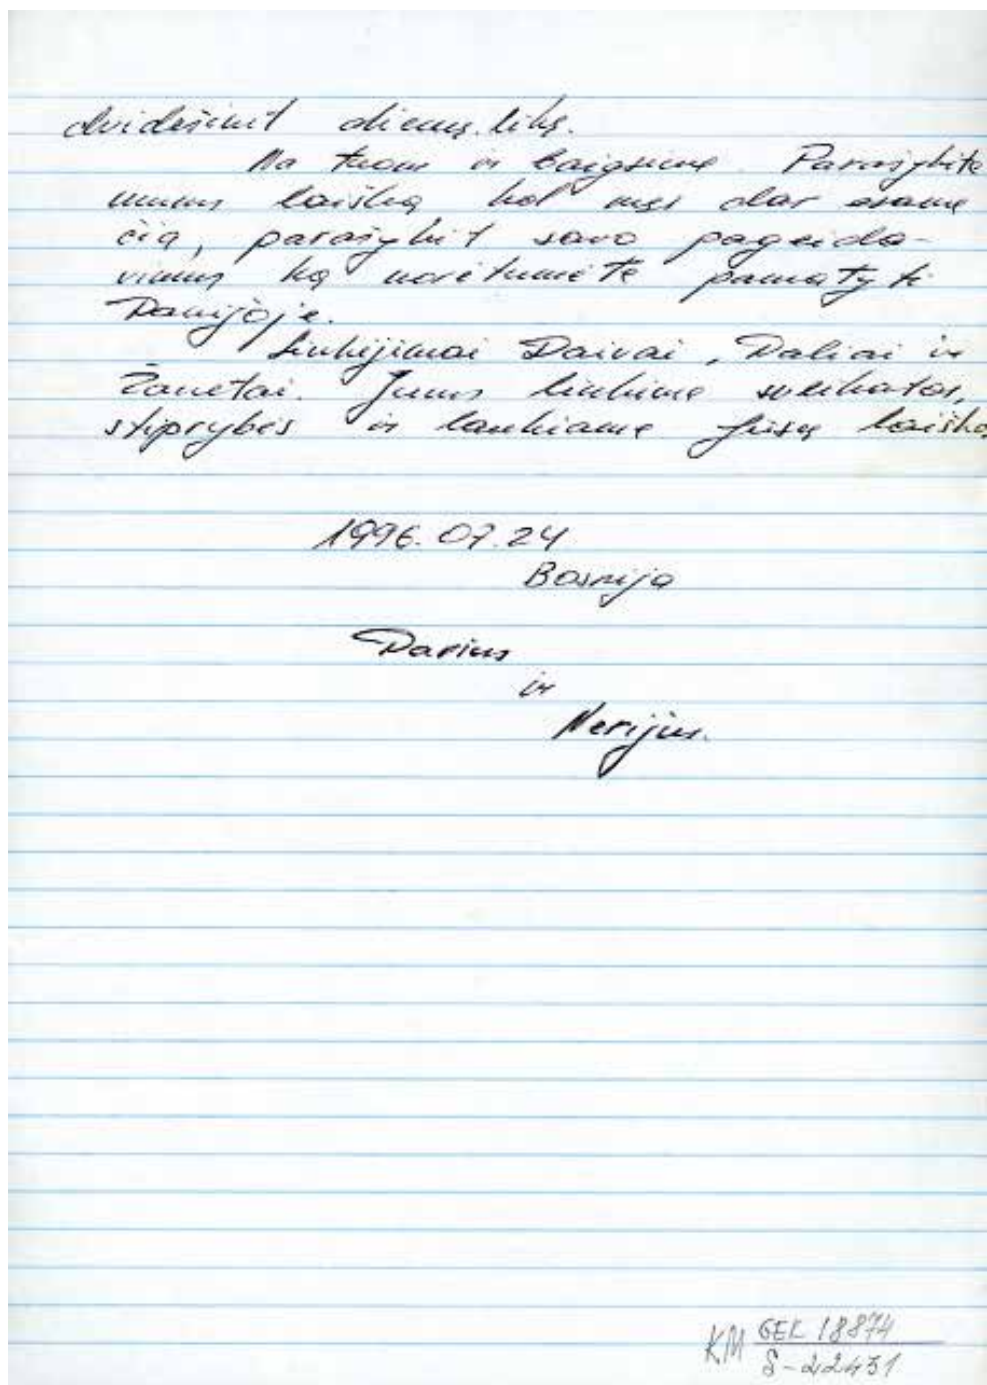 dvidešimt dienų liks.
Na tuom ir baigsime. Parašykite
mums laišką, kol mes dar esame
čia, parašykit savo pageida-
vimus ką norėtumėte pamatyti
Danijoje.
Linkėjimai Daivai, Daliai ir
Žanetai. Jums linkime sveikatos,
stiprybės ir laukiame Jūsų laiško
1996.07.24
Bosnija
Darius
ir
Nerijus.
KM GEK 18874
S-22431